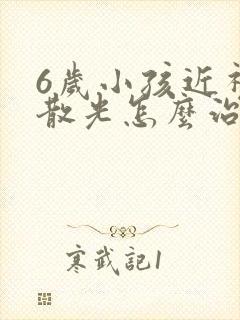 6歲小孩近視
散光怎麼治
寒武記1